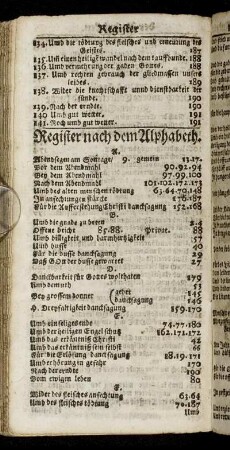 Register
134. Umb die tödtung des fleisches und erneurung des
Geistes. 187
135. Umb einen heiligē wandel nach dem tauffbunde. 188
136. Umb verwahrung der gaben Gottes. 188
137. Umb rechten gebrauch der gliedmassen unsers
leibes. 189
138. Wider die knechtschafft und dienstbarkeit der
sünde. 190
139. Nach der erndte. 190
140. Umb gut wetter. 191
141. Noch umb gut wetter. 191
Register nach dem Alphabeth.
A.
Abendsegen am Sontage/ 9. gemein 11-17.
Vor dem Abendmahl 90.92-94
Bey dem Abendmahl 97-99.100
Nach dem Abendmahl 101-102.172.173
Umb des alten menschen tödtung 63.64.70.148
In anfechtungen stärcke 176.187
Für die Aufferstehung Christi dancksagung 152-168
B.
Umb die gnade zu beten 2.4
Offene beicht 85-88. Private. 88
Umb billigkeit und barmhertzigkeit 57
Umb busse 40
Für die busse dancksagung 29
Daß GOtt der busse gedencket 27
D.
Danckbarkeit für Gottes wolthaten 179
Umb demuth 51
Bey grossem donner (gebet 145
dancksagung 146
H. Dreyfaltigkeit dancksagung 159.170
E.
Umb ein seliges ende 74.77.180
Umb der heiligen Engel schutz 162.171.172
Umb das erkäntniß Christi 42
Umb das erkäntniß sein selbst 66
Für die Erlösung dancksagung 18.19.171
Umb erhörung in gefahr 170
Nach der erndte 190
Vom ewigen leben 80
F.
Wider des fleisches anfechtung 63.64
Umb des fleisches tödtung 70.187
Umb